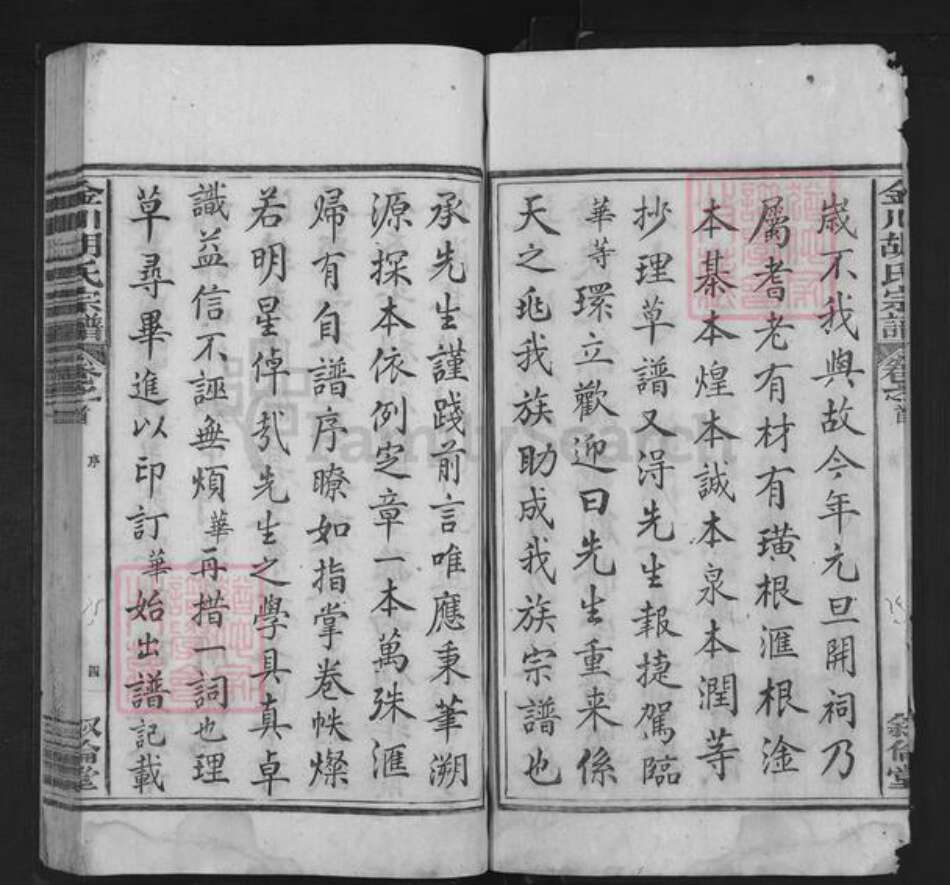 金川胡氏宗譜 卷之首
敘倫堂
歲不我與故今年元旦開祠乃
屬耆老有材有璜根滙根淦
本棊本煌本誠本泉本潤等
抄理草譜又淂先生報捷駕臨
華等環立歡迎曰先生重来係
天之兆我族助成我族宗譜也
承先生謹踐前言唯應秉筆溯
源探本依例定章一本萬殊滙
歸有自譜序瞭如指掌卷帙燦
若明星倬㢤先生之學具真卓
識益信不誣無煩華再措一詞也理
草尋畢進以印訂華始出譜記載
金川胡氏宗譜 卷之首
序
四
敘倫堂
FamilySearch